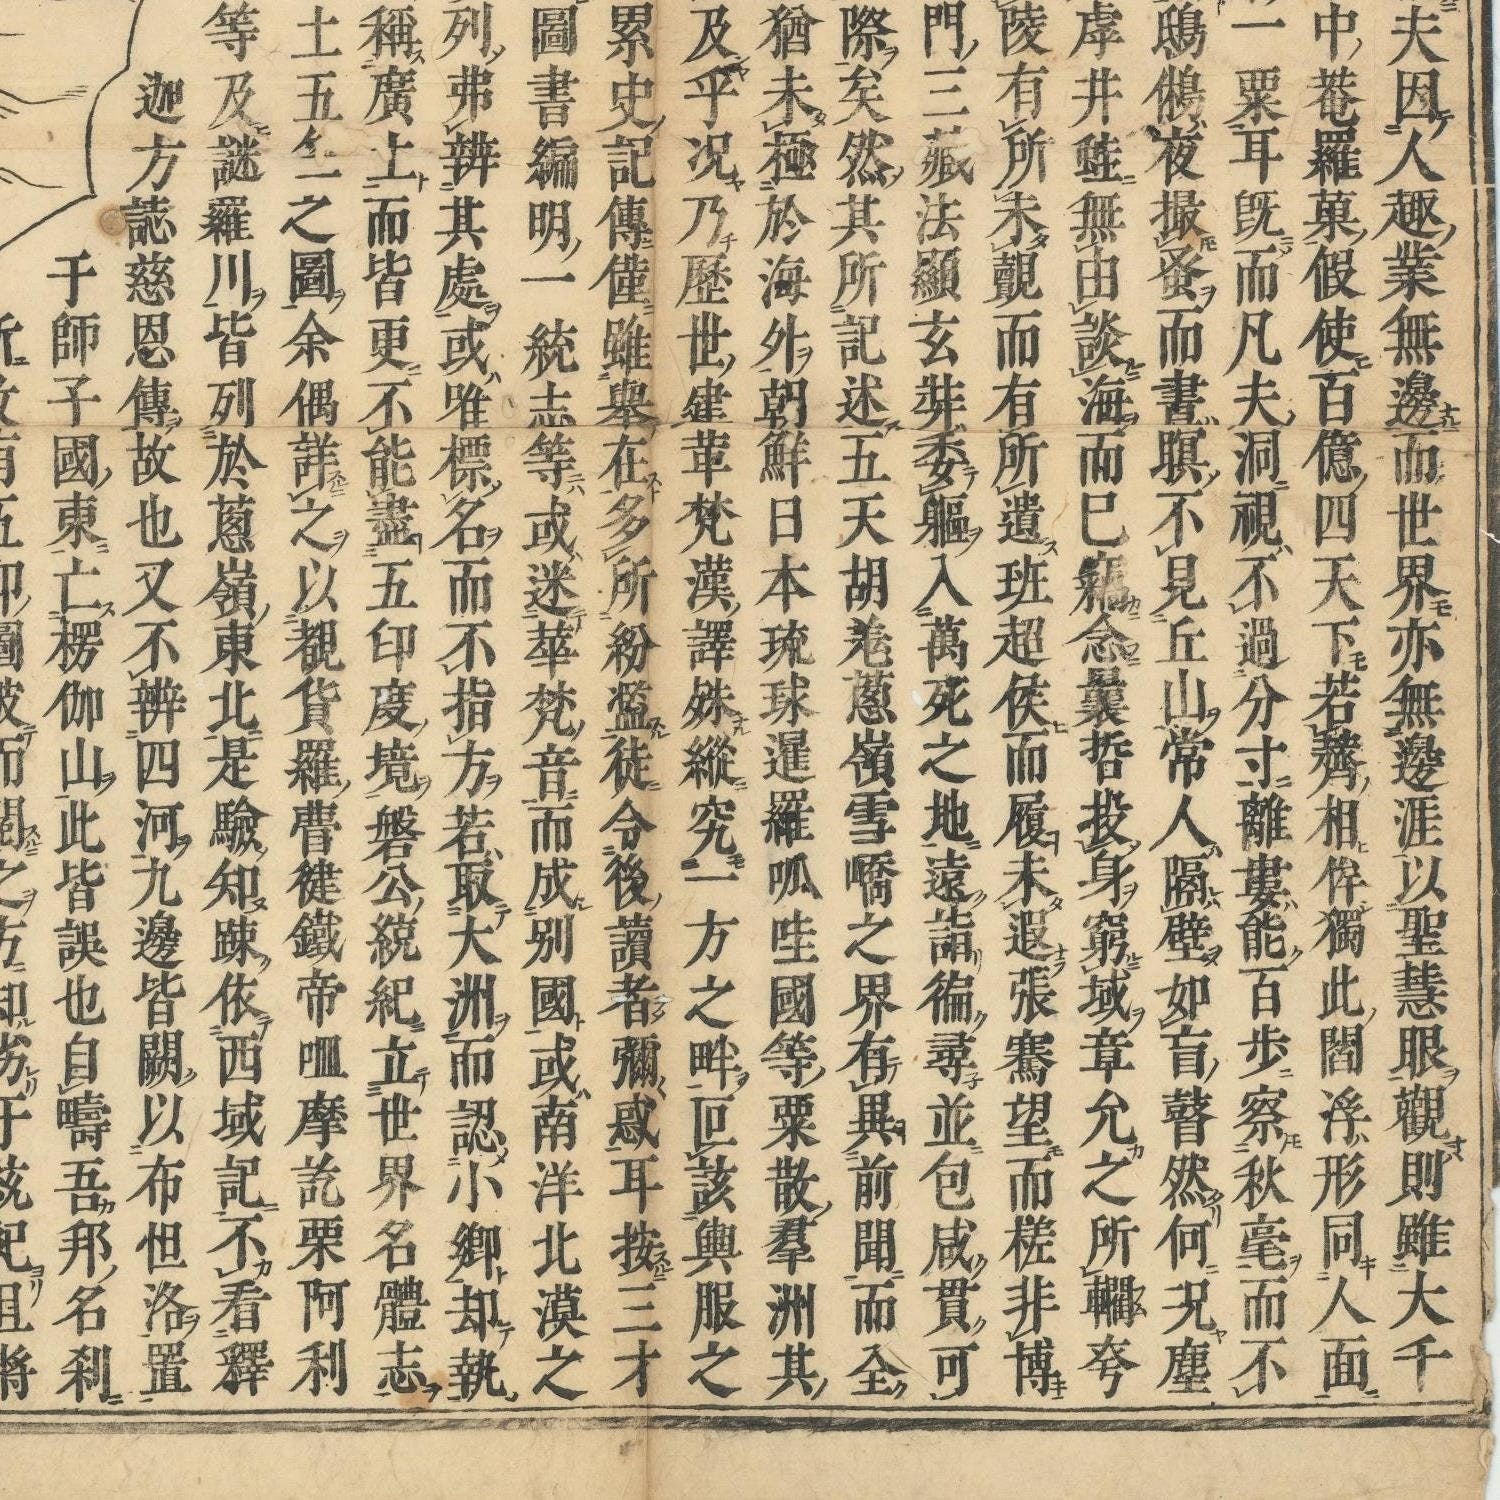 夫因人趣業無邊而世界亦無邊涯以聖慧眼觀則雖大千
中菴羅菓假使百億四天下若齊相侔獨此閻浮形同人面
一粟耳既而凡夫洞視不過分寸離婁能百步察秋毫而不
鴟鵂夜撮蚤而晝瞑不見丘山常人隔壁如盲瞽然何況塵
虖井蛙無由談海而已竊念曩哲投身窮域章允之所輶夸
陵有所未覿而有所遺班超侯而履未遐張騫望而槎非博
門三藏法顯玄奘委軀入萬死之地遠詣徧尋並包咸貫可
際矣然其所記述五天胡羌蔥嶺雪嶠之界有異前聞而全
猶未極於海外朝鮮日本琉球暹羅呱哇國等粟散羣洲其
及乎況乃歷世建革梵漢譯殊縱究一方之畔叵該輿服之
累史記傳僅雖舉在多所紛濫徒令後讀者彌惑耳按三才
圖書編明一統志等或迷華梵音而成別國或南洋北漠之
列弗辨其處或唯標名而不指方若取大洲而認小鄉却執
稱廣上而皆更不能盡五印度境磐公統紀立世界名體志
土五竺之圖余偶詳之以覩貨羅瞢健鐵帝呬摩訖栗阿利
等及謎羅川皆列於蔥嶺東北是驗知踈依西域記不看釋
迦方誌慈恩傳故也又不辨四河九邊皆闕以布怛洛置
于師子國東亡楞伽山此皆誤也自疇吾邦名刹